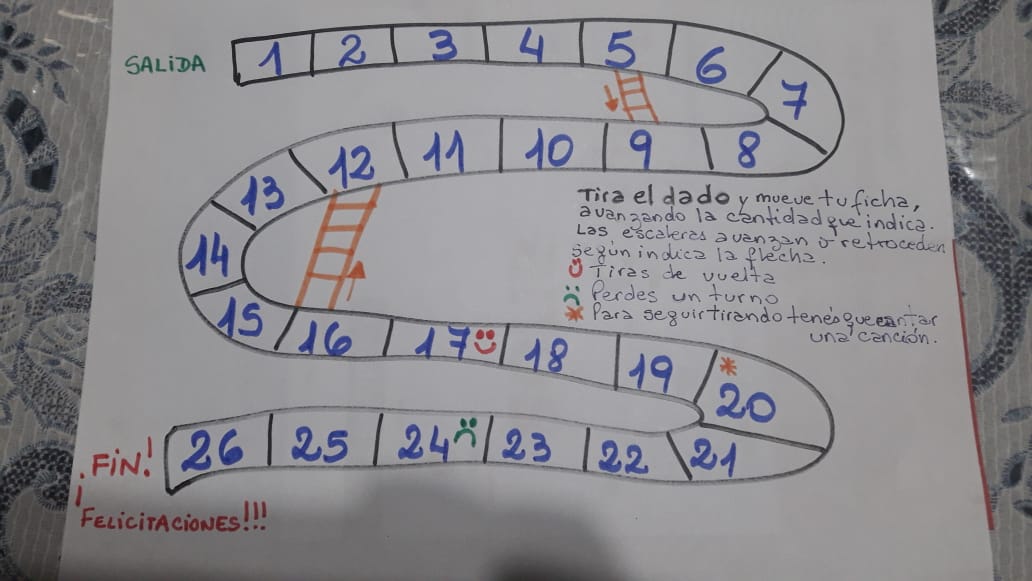 SALIDA
1 2 3 4 5 6 7
13 12 11 10 9 8
14
15 16 17 18 19 20
26 25 24 23 22 21
Tira el dado y mueve tu ficha,
avanzando la cantidad que indica.
Las escaleras avanzan o retroceden
según indica la flecha.
Tiras de vuelta
Perdes un turno
* Para seguir tirando tenés que cantar
una canción.
¡FIN!
FELICITACIONES!!!